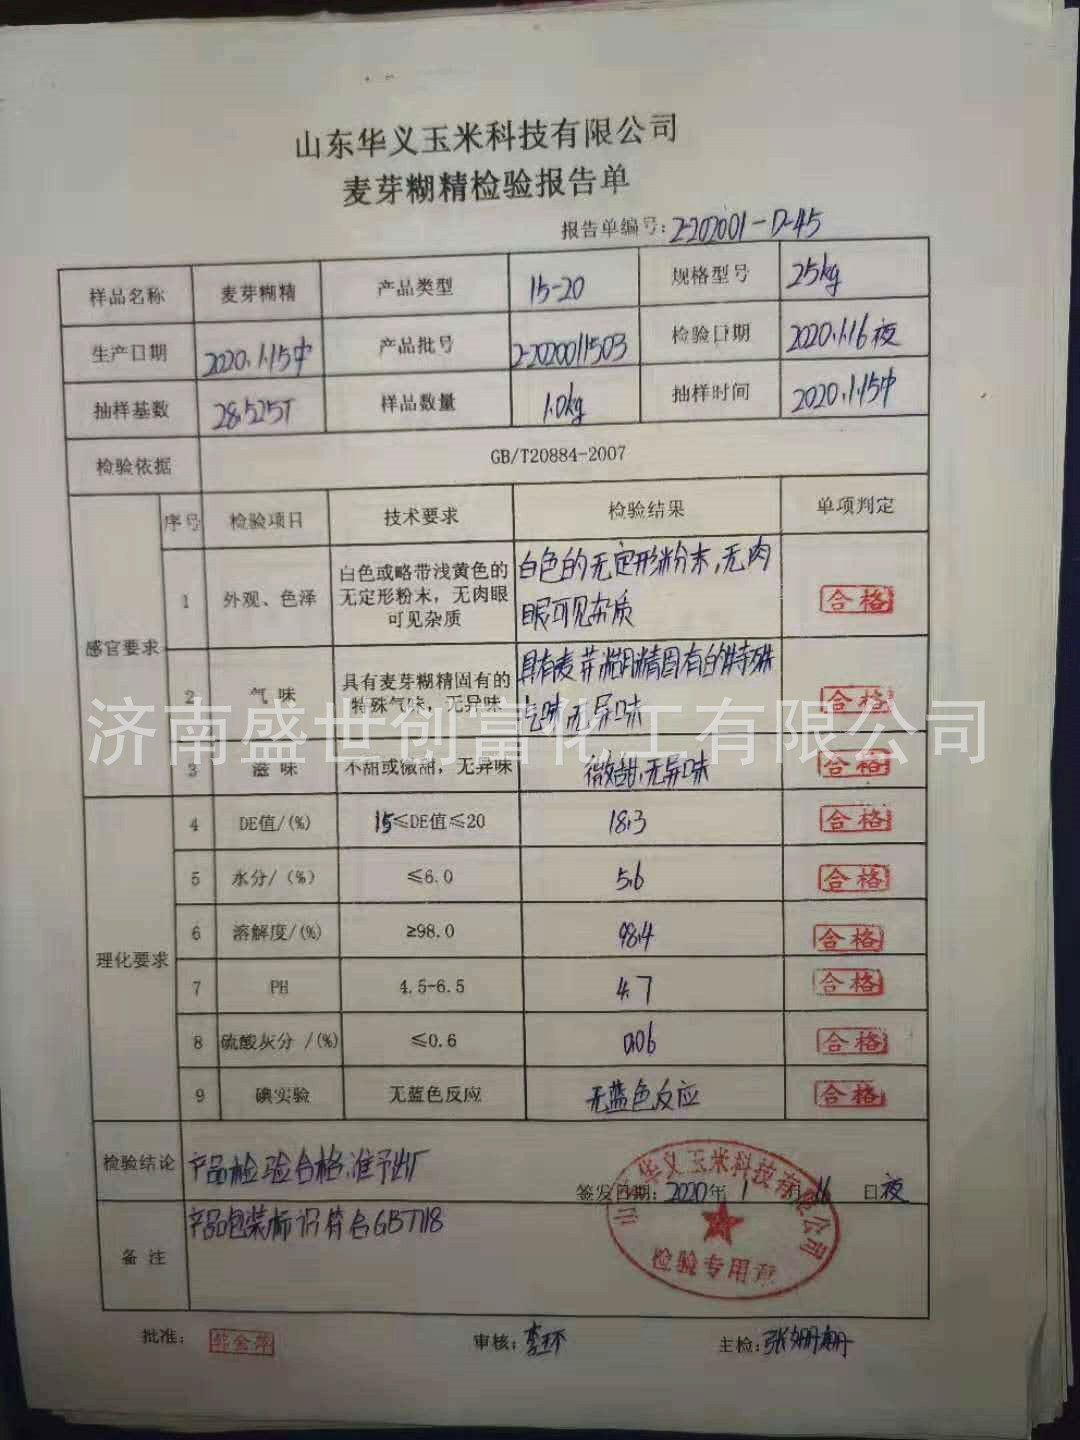 山东华义玉米科技有限公司
麦芽糊精检验报告单
报告单编号：2-202001-D-45
样品名称 麦芽糊精 产品类型 15-20 规格型号 25kg
生产日期 2020.1.15中 产品批号 2-2020011503 检验日期 2020.1.16夜
抽样基数 28.525T 样品数量 1.0kg 抽样时间 2020.1.15中
检验依据 GB/T20884-2007
序号 检验项目 技术要求 检验结果 单项判定
感官要求
1 外观、色泽 白色或略带浅黄色的 白色的无定形粉末，无肉 合格
无定形粉末，无肉眼 眼可见杂质
可见杂质
2 气味 具有麦芽糊精固有的 具有麦芽糊精固有的特殊 合格
特殊气味，无异味 气味，无异味
济南盛世创富化工有限公司
3 滋味 不甜或微甜，无异味 微甜，无异味 合格
理化要求
4 DE值/(%) 15≤DE值≤20 18.3 合格
5 水分/（%） ≤6.0 5.6 合格
6 溶解度/(%) ≥98.0 98.4 合格
7 PH 4.5-6.5 4.7 合格
8 硫酸灰分 /(%) ≤0.6 0.06 合格
9 碘实验 无蓝色反应 无蓝色反应 合格
检验结论 产品检验合格，准予出厂
签发日期：2020年1月16日夜
备注 产品包装标识符合GB7718
山东华义玉米科技有限公司
检验专用章
批准： 审核：李环 主检：张姗姗